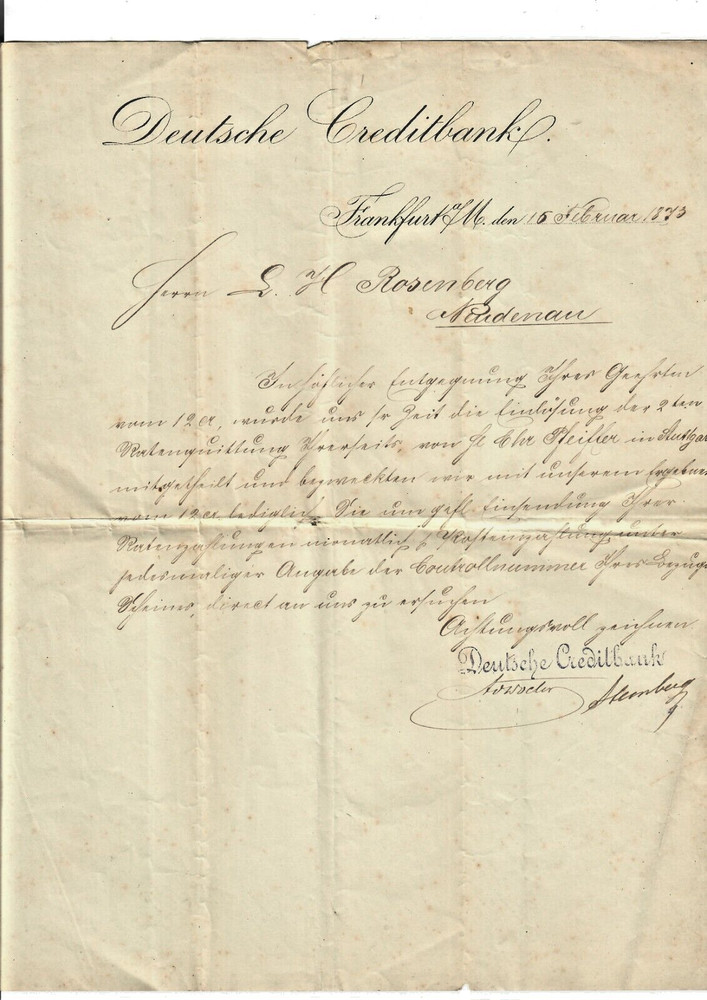 Deutsche Creditbank.
Frankfurt a/M. den 15 Februar 1873
Herrn L. H Rosenberg
Neudenau
In höflicher Entgegnung Ihres Geehrten
vom 12 cr, wurde uns sr Zeit die Einlösung der 2ten
Ratenquittung Ihrerseits, von H Chr Pfeiffer in Stuttgar
mitgetheilt und bezweckten wir mit unserem Ergebnen
vom 12 cr lediglich Sie um gefl. Einsendung Ihrer
Ratenzahlungen monatlich p Postenzahlung unter
jedesmaliger Angabe der Controllnummer Ihres Bezugs
Scheines, direct an uns zu ersuchen
Achtungsvoll zeichnen
Deutsche Creditbank
Sternberg